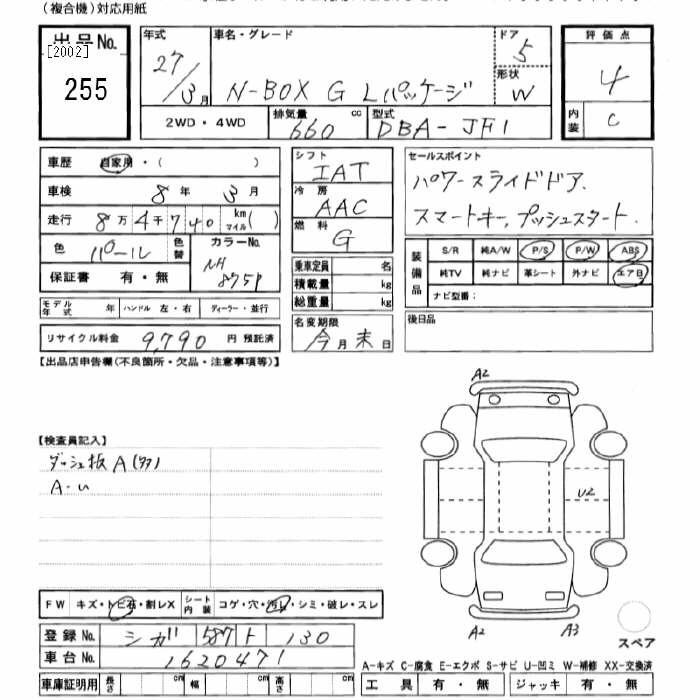 (複合機)対応用紙
出品No.
[2002]
255
年式
27/3月
車名・グレード
N-BOX G Lパッケージ
ドア
5
形状
W
2WD・4WD
排気量
660 cc
型式
DBA-JF1
評価点
4
内装
C
車歴 自家用・( )
車検 8年 3月
走行 8万4千740 km マイル( )
色 パール 色替
カラーNo.
NH
875P
保証書 有・無
モデル年式 年 ハンドル 左・右 ディーラー・並行
リサイクル料金 9,790 円 預託済
シフト
IAT
冷房
AAC
燃料
G
乗車定員 名
積載量 kg
総重量 kg
名変期限
今月末日
セールスポイント
パワースライドドア.
スマートキー,プッシュスタート.
装備品
S/R 純A/W P/S P/W ABS
純TV 純ナビ 革シート 外ナビ エアB
ナビ型番:
後日品
【出品店申告欄(不良箇所・欠品・注意事項等)】
【検査員記入】
ダッシュ板A(タタ)
A・U
A2
U2
A2
A3
スペア
FW キズ・トビ石・割レX シート内装 コゲ・穴・汚レ・シミ・破レ・スレ
登録No. シガ 587 ト 130
車台No. 1620471
車庫証明用 長さ cm 幅 cm 高さ cm
A-キズ C-腐食 E-エクボ S-サビ U-凹ミ W-補修 XX-交換済
工具 有・無 ジャッキ 有・無